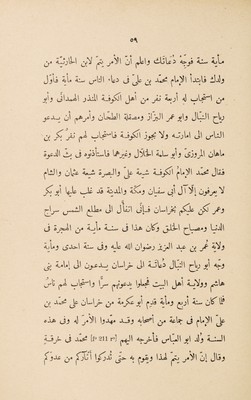 ٥٩
مأية سنة فوجّهْ دُعاتك واعلم أنّ الأمر يتمّ لابن الحارثيّة من
ولدك فابتدأ الإمام محمّد بن علىّ فى دعاء الناس سنة مأية فأوّل
من استجاب له أربعة نفر من أهل الكوفة المنذر الهمدانىّ وأبو
رياح النبّال وأبو عمر البزّاز ومصقلة الطحّان وأمرهم أن يدعو
الناس الى امارته ولا يجوز الكوفة فاستجاب لهم نفر بكر بن
ماهان المروزىّ وأبو سلمة الخلّال وغيرهما فاستأذنوه فى بثّ الدعوة
فقال محمّد الإمام الكوفة شيعة علىّ والبصرة شيعة عثمان والشام
لا يعرفون إلّا آل أبى سفيان ومكّة والمدينة قد غلب عليها أبو بكر
وعمر لكن عليكم بخراسان فإنّى اتفأّل الى مطلع الشمس سراج
الدنيا ومصباح الخلق وكان هذا فى سنة مأية من الهجرة فى
ولاية عُمر بن عبد العزيز رضوان الله عليه وفى سنة احدى ومأية
وجّه أبو رياح النبّال دُعاتَه الى خراسان يدعون الى إمامة بنى
هاشم وولاية أهل البيت فجعلوا يدعونهم سرًّا واستجاب لهم ناسٌ
فلمّا كان سنة أربع ومأية قدم أبو عكرمة من خراسان على محمّد بن
علىّ الإمام فى جماعة من أصحابه وقد مهّدوا الأمر له وفى هذه
السنة وُلد ابو العبّاس فأخرجه اليهم [fº 211 rº] محمّد فى خرقةٍ
وقال إنّ الأمر يتمّ لهذا ويقوم به حتّى تُدركوا ثاركم من عدوّكم